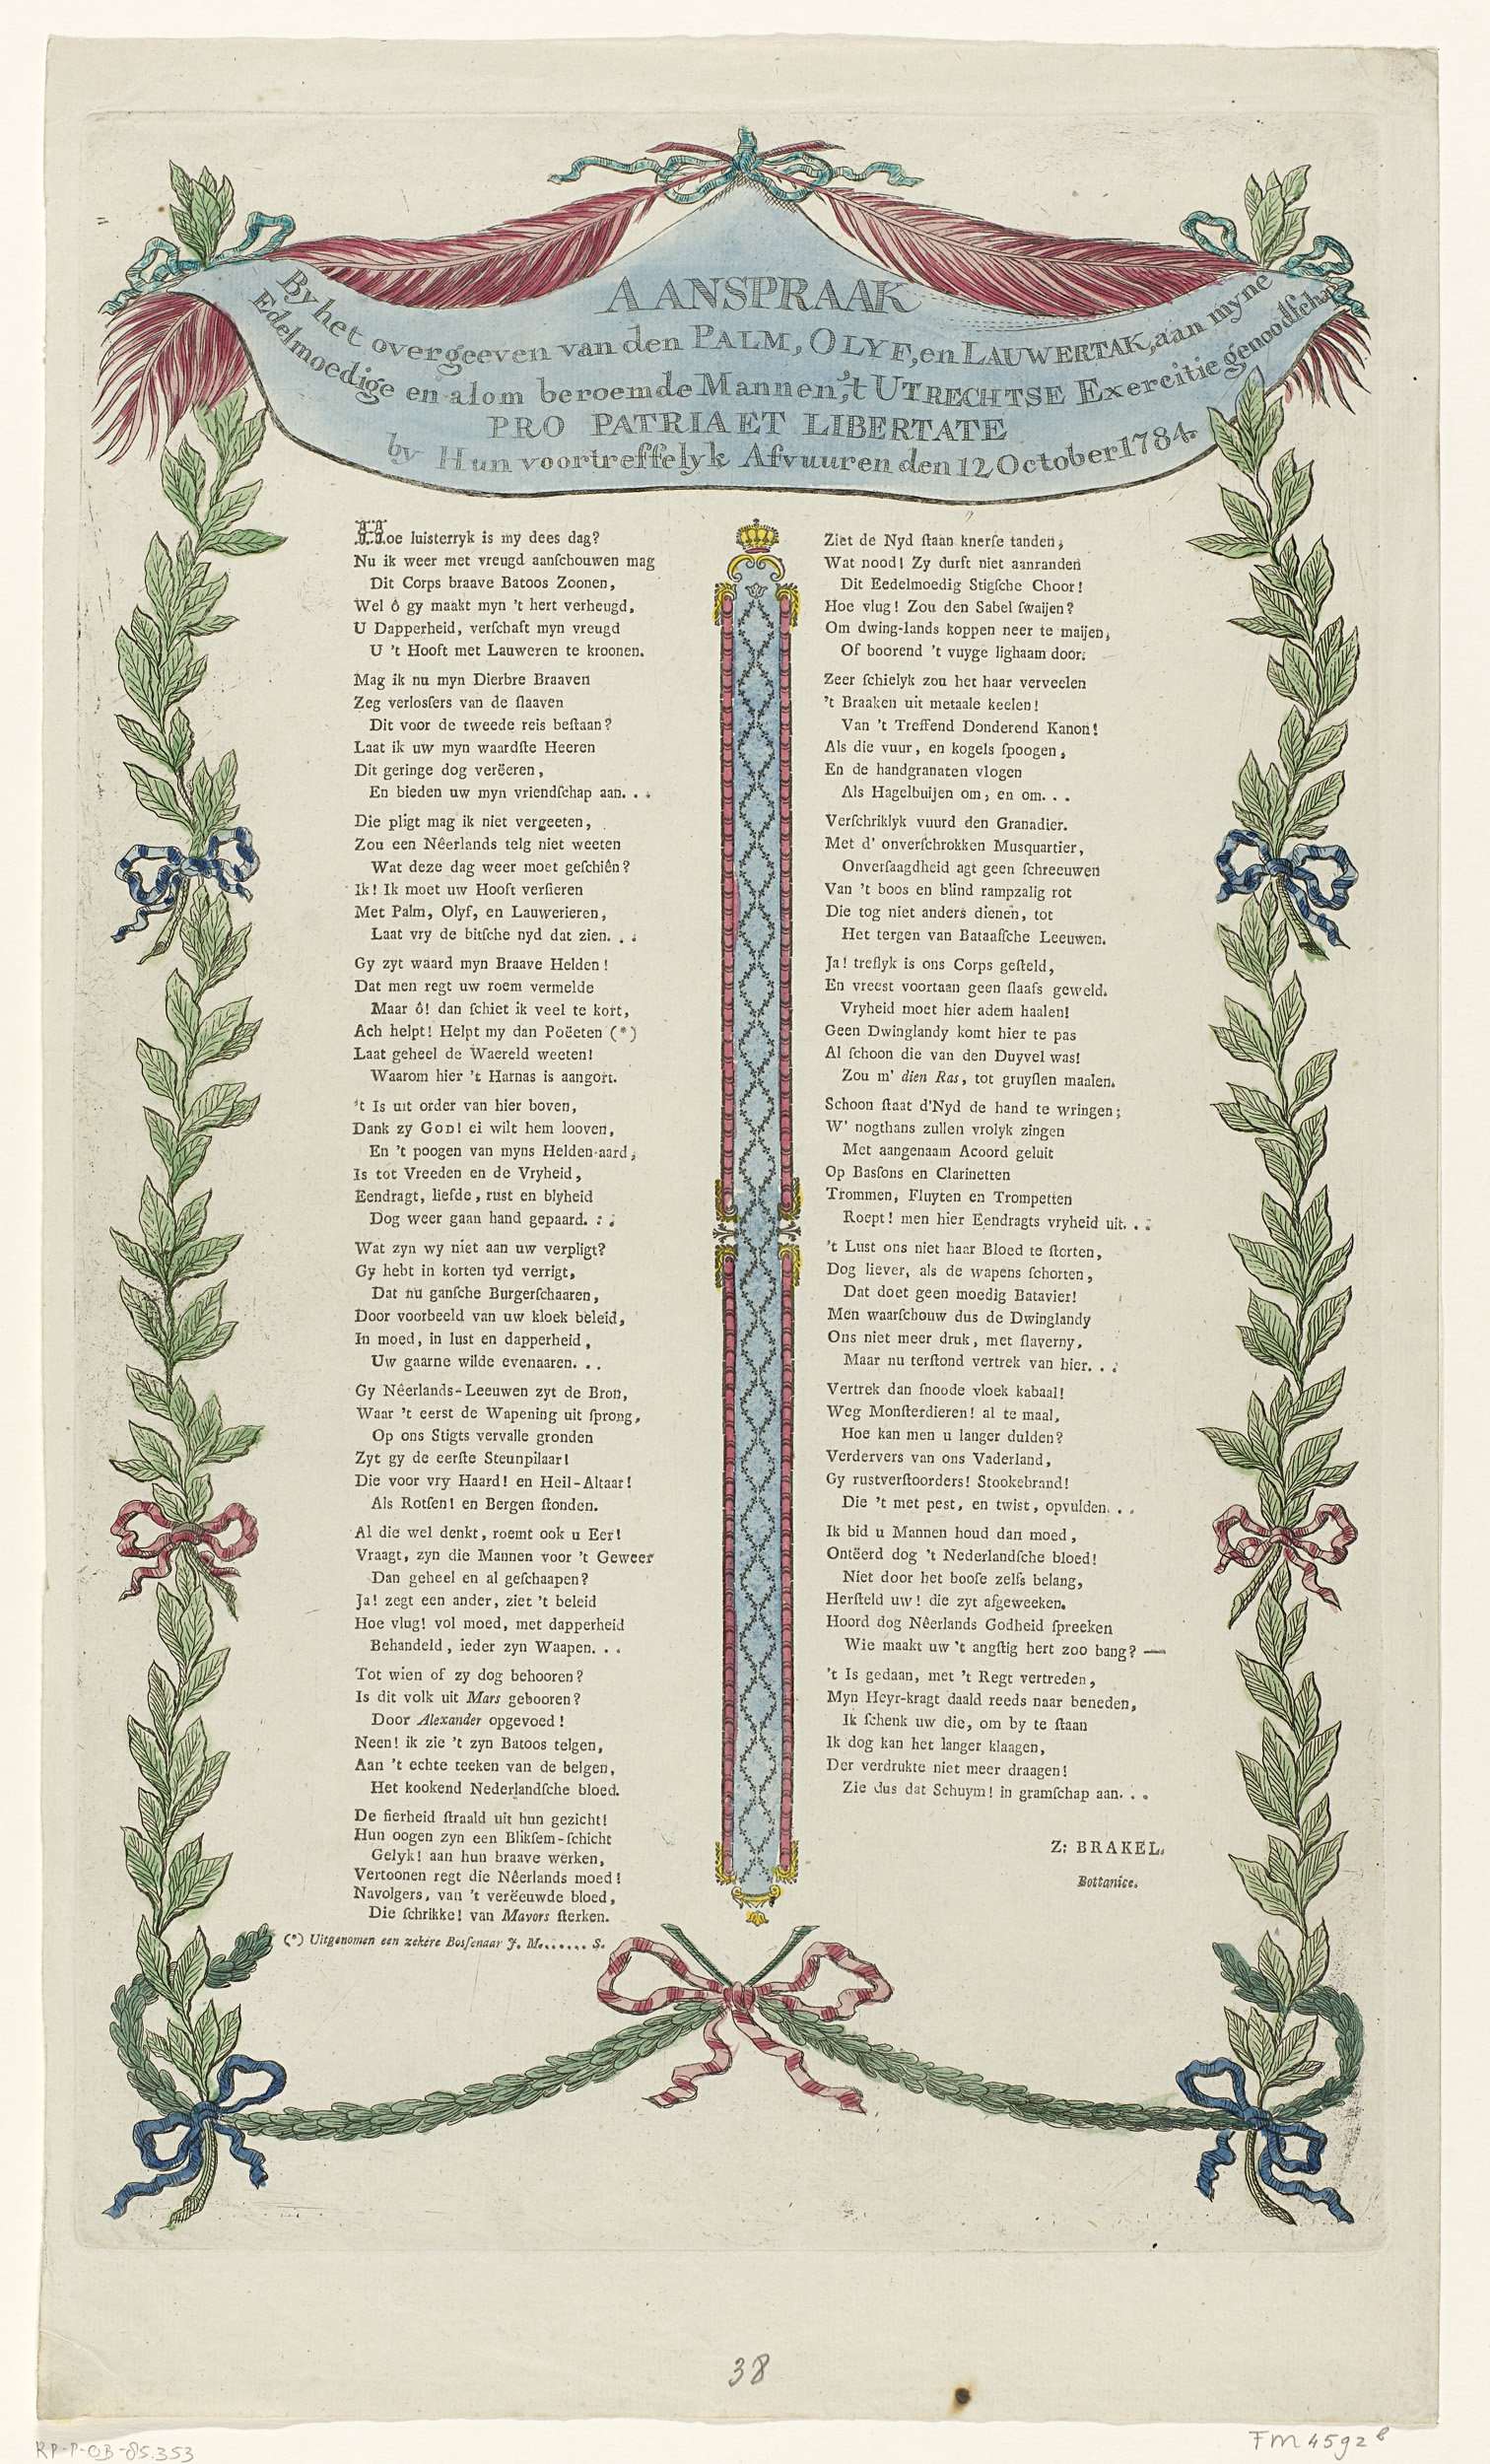 AANSPRAAK
By het overgeeven van den PALM, OLYF, en LAUWERTAK, aan myne
Edelmoedige en alom beroemde Mannen, 't UTRECHTSE Exercitie genoodschap
PRO PATRIA ET LIBERTATE
by Hun voortreffelyk Afvuuren den 12 October 1784.
Hoe luisterryk is my dees dag?
Nu ik weer met vreugd aanſchouwen mag
Dit Corps braave Batoos Zoonen,
Wel ô gy maakt myn 't hert verheugd,
U Dapperheid, verſchaft myn vreugd
U 't Hooft met Lauweren te kroonen.
Mag ik nu myn Dierbre Braaven
Zeg verlosſers van de ſlaaven
Dit voor de tweede reis beſtaan?
Laat ik uw myn waardſte Heeren
Dit geringe dog verëeren,
En bieden uw myn vriendſchap aan. . .
Die pligt mag ik niet vergeeten,
Zou een Nêerlands telg niet weeten
Wat deze dag weer moet geſchiên?
Ik! Ik moet uw Hooft verſieren
Met Palm, Olyf, en Lauwerieren,
Laat vry de bitſche nyd dat zien. . .
Gy zyt waard myn Braave Helden!
Dat men regt uw roem vermelde
Maar ô! dan ſchiet ik veel te kort,
Ach helpt! Helpt my dan Poëeten (*)
Laat geheel de Waereld weeten!
Waarom hier 't Harnas is aangort.
't Is uit order van hier boven,
Dank zy GOD! ei wilt hem looven,
En 't poogen van myns Helden-aard,
Is tot Vreeden en de Vryheid,
Eendragt, liefde, rust en blyheid
Dog weer gaan hand gepaard. . .
Wat zyn wy niet aan uw verpligt?
Gy hebt in korten tyd verrigt,
Dat nu ganſche Burgerſchaaren,
Door voorbeeld van uw kloek beleid,
In moed, in lust en dapperheid,
Uw gaarne wilde evenaaren. . .
Gy Nêerlands-Leeuwen zyt de Bron,
Waar 't eerst de Wapening uit ſprong,
Op ons Stigts vervalle gronden
Zyt gy de eerſte Steunpilaar!
Die voor vry Haard! en Heil-Altaar!
Als Rotſen! en Bergen ſtonden.
Al die wel denkt, roemt ook u Eer!
Vraagt, zyn die Mannen voor 't Geweer
Dan geheel en al geſchaapen?
Ja! zegt een ander, ziet 't beleid
Hoe vlug! vol moed, met dapperheid
Behandeld, ieder zyn Waapen. . .
Tot wien of zy dog behooren?
Is dit volk uit Mars gebooren?
Door Alexander opgevoed!
Neen! ik zie 't zyn Batoos telgen,
Aan 't echte teeken van de belgen,
Het kookend Nederlandſche bloed.
De fierheid ſtraald uit hun gezicht!
Hun oogen zyn een Blikſem-ſchicht
Gelyk! aan hun braave werken,
Vertoonen regt die Nêerlands moed!
Navolgers, van 't verëeuwde bloed,
Die ſchrikke! van Mavors ſterken.
(*) Uitgenomen een zekere Bosſenaar J. M....... S.
Ziet de Nyd ſtaan knerſe tanden,
Wat nood! Zy durft niet aanranden
Dit Eedelmoedig Stigſche Choor!
Hoe vlug! Zou den Sabel ſwaijen?
Om dwing-lands koppen neer te maijen,
Of boorend 't vuyge lighaam door.
Zeer ſchielyk zou het haar verveelen
't Braaken uit metaale keelen!
Van 't Treffend Donderend Kanon!
Als die vuur, en kogels ſpoogen,
En de handgranaten vlogen
Als Hagelbuijen om, en om. . .
Verſchriklyk vuurd den Granadier.
Met d' onverſchrokken Musquartier,
Onverſaagdheid agt geen ſchreeuwen
Van 't boos en blind rampzalig rot
Die tog niet anders dienen, tot
Het tergen van Bataaſſche Leeuwen.
Ja! treflyk is ons Corps geſteld,
En vreest voortaan geen ſlaafs geweld.
Vryheid moet hier adem haalen!
Geen Dwinglandy komt hier te pas
Al ſchoon die van den Duyvel was!
Zou m' dien Ras, tot gruyſlen maalen.
Schoon ſtaat d'Nyd de hand te wringen;
W' nogthans zullen vrolyk zingen
Met aangenaam Acoord geluit
Op Basſons en Clarinetten
Trommen, Fluyten en Trompetten
Roept! men hier Eendragts vryheid uit. . .
't Lust ons niet haar Bloed te ſtorten,
Dog liever, als de wapens ſchorten,
Dat doet geen moedig Batavier!
Men waarſchouw dus de Dwinglandy
Ons niet meer druk, met ſlaverny,
Maar nu terſtond vertrek van hier. . .
Vertrek dan ſnoode vloek kabaal!
Weg Monſterdieren! al te maal,
Hoe kan men u langer dulden?
Verdervers van ons Vaderland,
Gy rustverſtoorders! Stookebrand!
Die 't met pest, en twist, opvulden. . .
Ik bid u Mannen houd dan moed,
Ontëerd dog 't Nederlandſche bloed!
Niet door het booſe zelfs belang,
Herſteld uw! die zyt afgeweeken.
Hoord dog Nêerlands Godheid ſpreeken
Wie maakt uw 't angſtig hert zoo bang? —
't Is gedaan, met 't Regt vertreden,
Myn Heyr-kragt daald reeds naar beneden,
Ik ſchenk uw die, om by te ſtaan
Ik dog kan het langer klaagen,
Der verdrukte niet meer draagen!
Zie dus dat Schuym! in gramſchap aan. . .
Z: BRAKEL.
Bottanice.
38
RP-P-OB-85.353
FM 4592 b